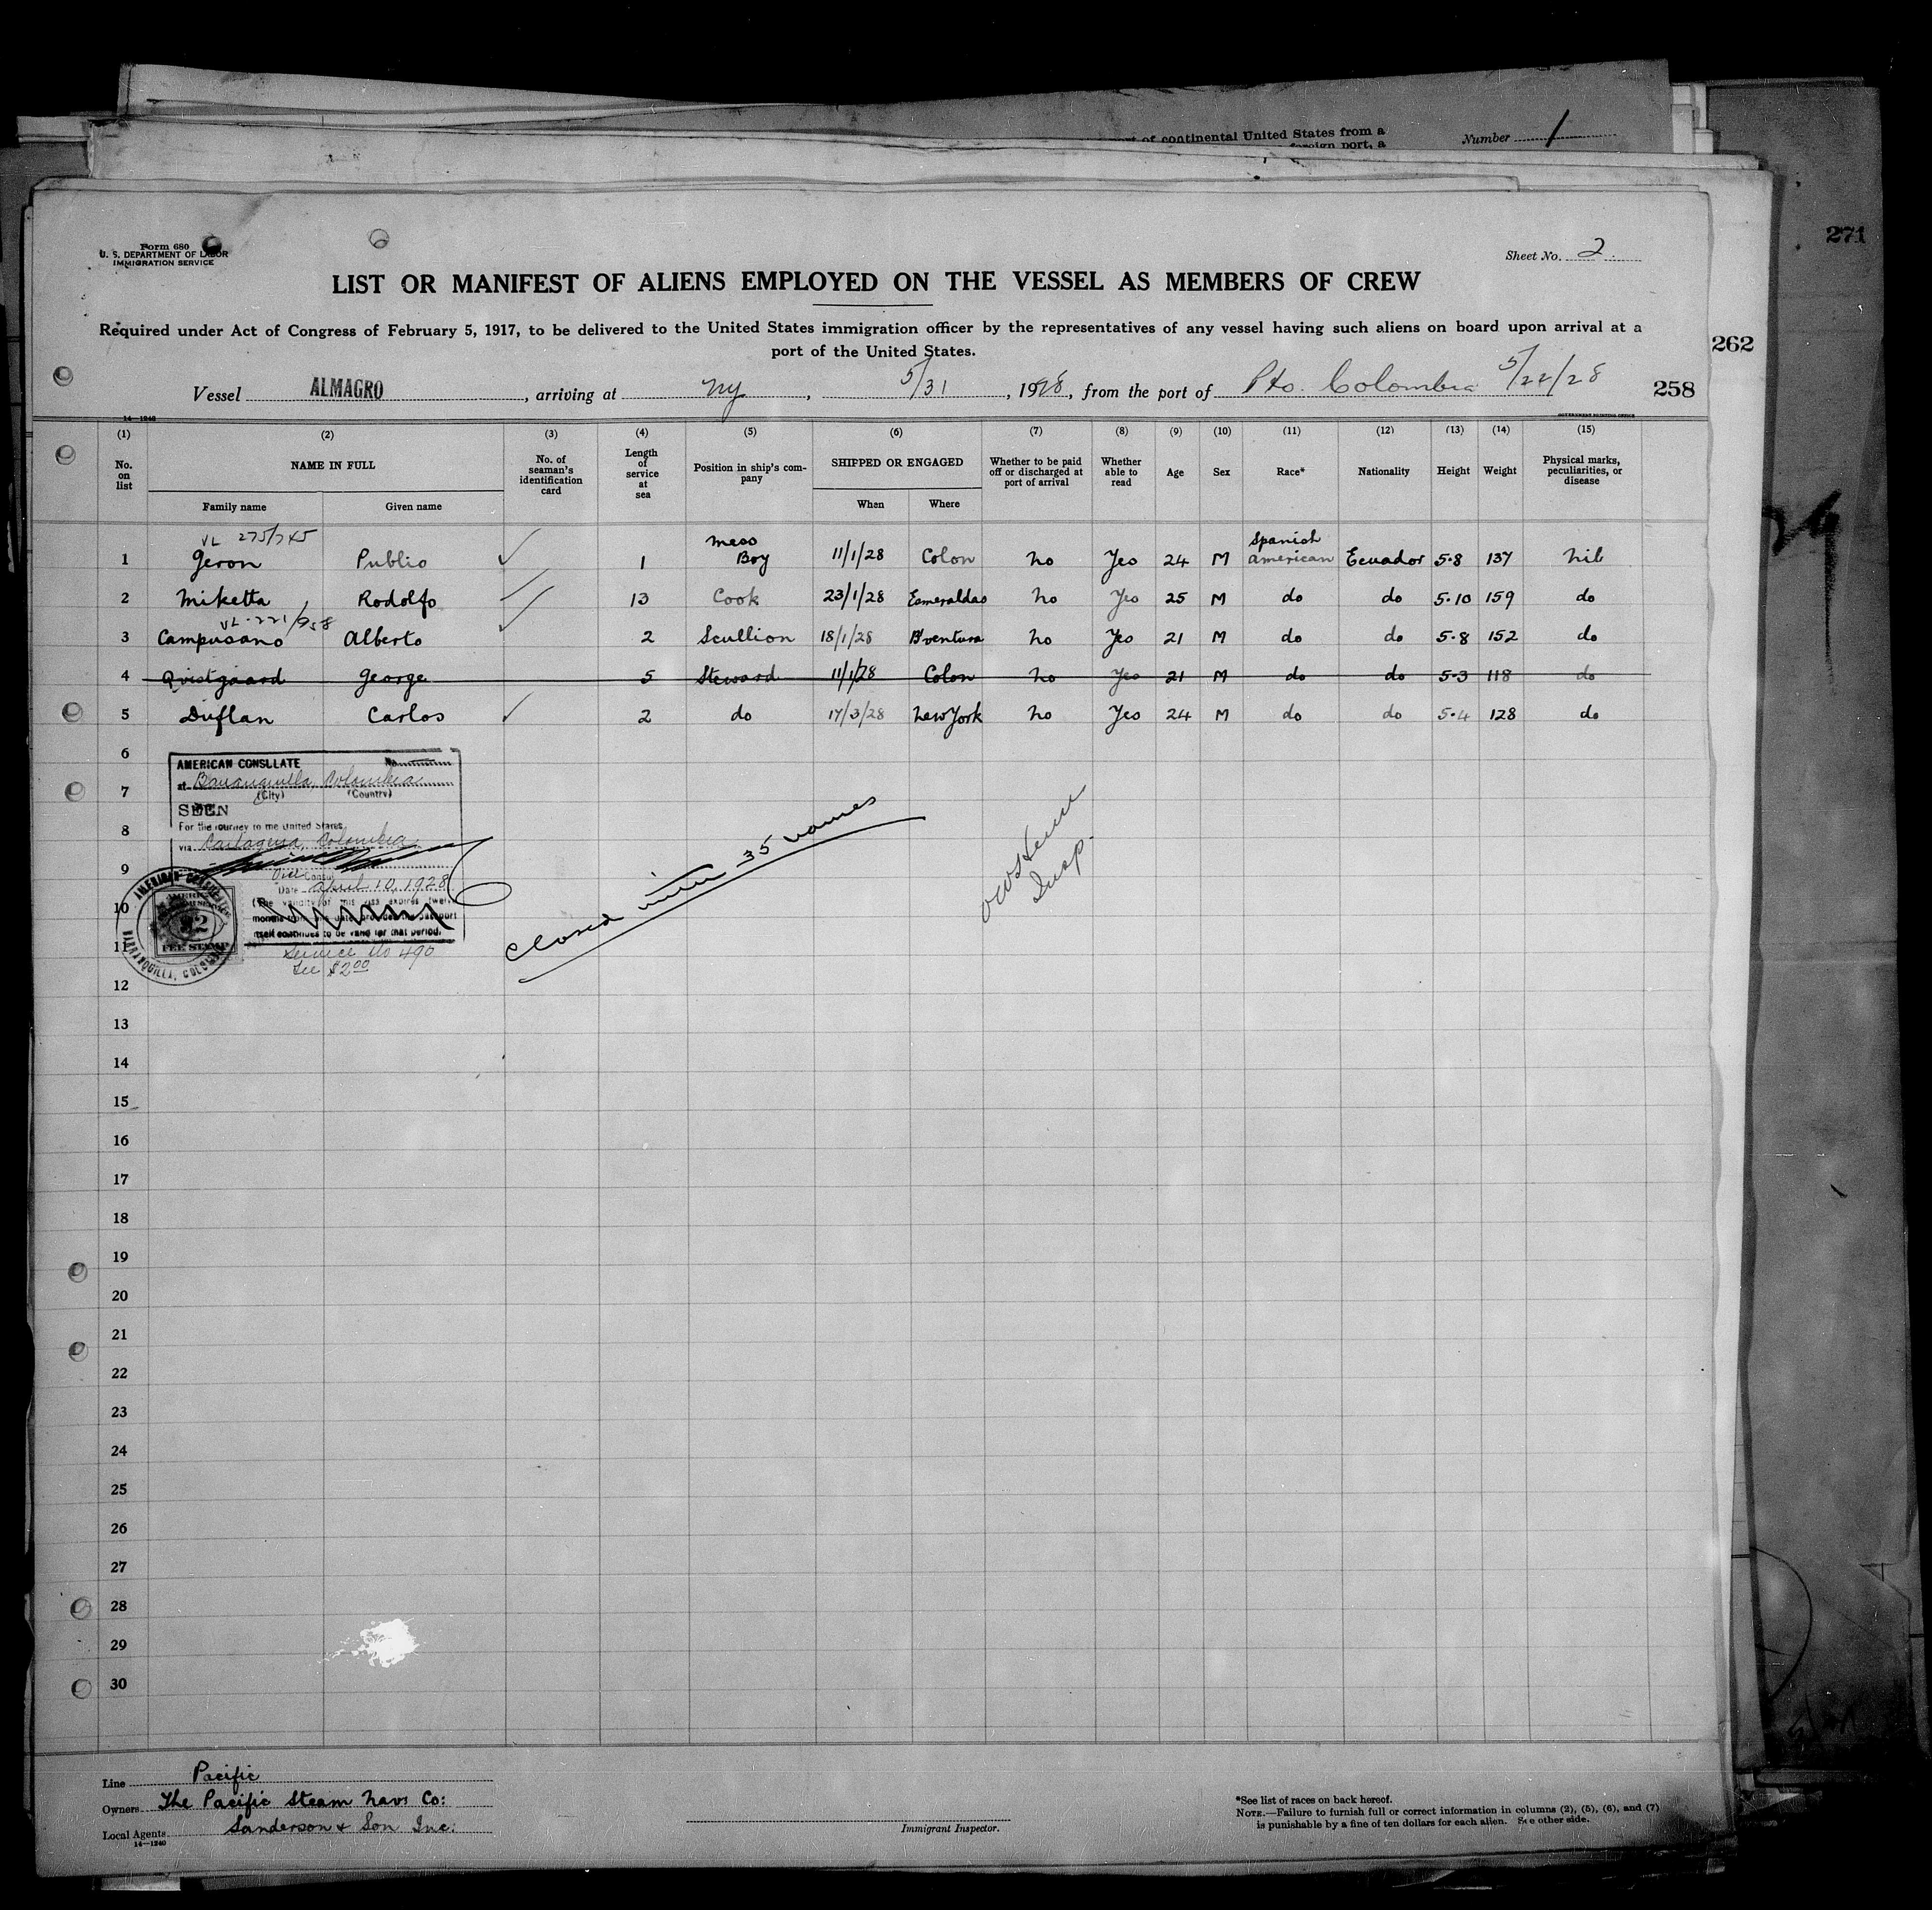 of continental United States from a
foreign port, a
Number 1
271
Form 680
U. S. DEPARTMENT OF LABOR
IMMIGRATION SERVICE
Sheet No. 2
LIST OR MANIFEST OF ALIENS EMPLOYED ON THE VESSEL AS MEMBERS OF CREW
Required under Act of Congress of February 5, 1917, to be delivered to the United States immigration officer by the representatives of any vessel having such aliens on board upon arrival at a
port of the United States.
262
Vessel ALMAGRO, arriving at NY, 5/31, 1928, from the port of Pto. Colombia 5/22/28
258
14—1240
GOVERNMENT PRINTING OFFICE
(1) (2) (3) (4) (5) (6) (7) (8) (9) (10) (11) (12) (13) (14) (15)
No. on list NAME IN FULL No. of seaman's identification card Length of service at sea Position in ship's company SHIPPED OR ENGAGED Whether to be paid off or discharged at port of arrival Whether able to read Age Sex Race* Nationality Height Weight Physical marks, peculiarities, or disease
Family name Given name When Where
VL 275/745
1 Geron Publio 1 Mess Boy 11/1/28 Colon No Yes 24 M Spanish American Ecuador 5·8 137 Nil
2 Miketta Rodolfo 13 Cook 23/1/28 Esmeraldas No Yes 25 M do do 5·10 159 do
VL-221/958
3 Campusano Alberto 2 Scullion 18/1/28 B'ventura No Yes 21 M do do 5·8 152 do
4 Qvistgaard George 5 Steward 11/1/28 Colon No Yes 21 M do do 5·3 118 do
5 Duflan Carlos 2 do 17/3/28 New York No Yes 24 M do do 5·4 128 do
6
7
8
9
10
11
12
13
14
15
16
17
18
19
20
21
22
23
24
25
26
27
28
29
30
AMERICAN CONSULATE No.
at Barranquilla, Colombia
(City) (Country)
SEEN
For the journey to the United States
via Cartagena, Colombia
Vice Consul
Date April 10, 1928
(The validity of this visa expires twelve
months from this date provided the passport
itself continues to be valid for that period.
Service No 490
Fee $2.00
AMERICAN CONSULATE
BARRANQUILLA, COLOMBIA
2
FEE STAMP
Closed with 35 names
Insp.
Line Pacific
Owners The Pacific Steam Navn Co:
Local Agents Sanderson & Son Inc:
14—1240
Immigrant Inspector.
*See list of races on back hereof.
NOTE.—Failure to furnish full or correct information in columns (2), (5), (6), and (7)
is punishable by a fine of ten dollars for each alien. See other side.